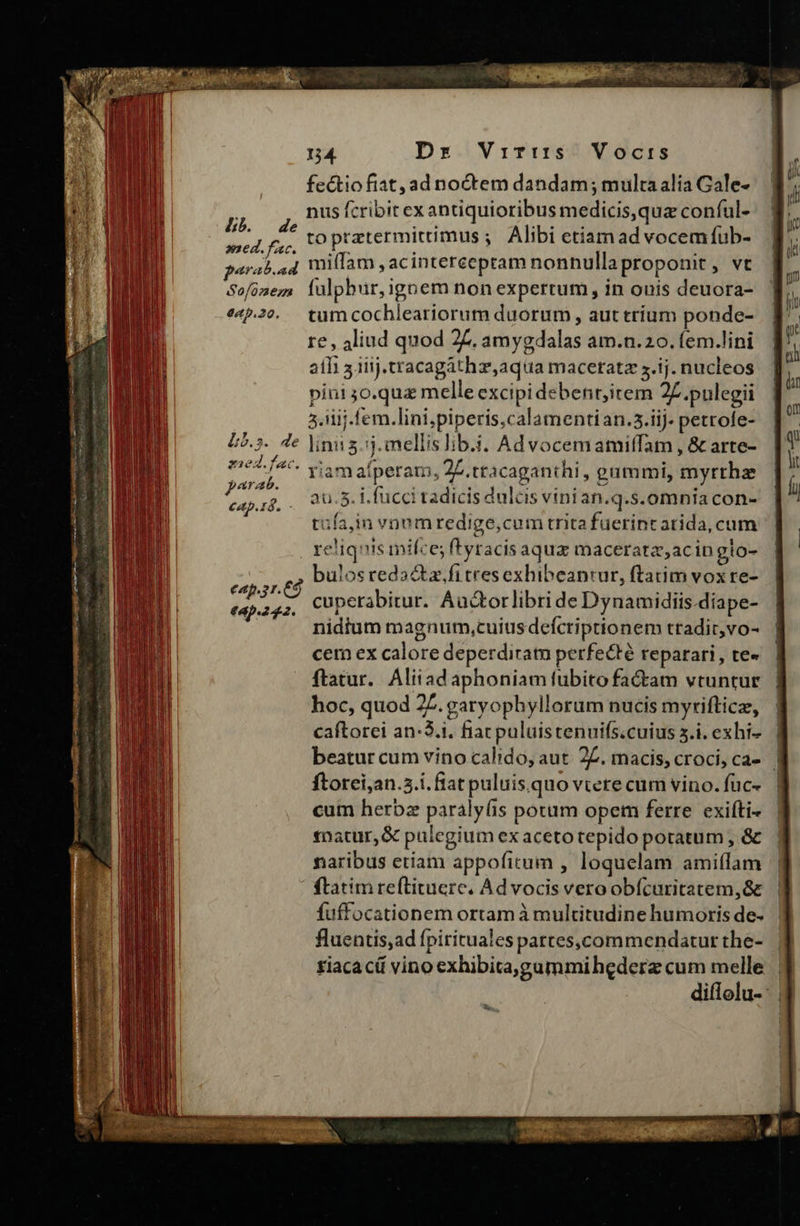 134 De Vitiis Vocis
fectio fiat, ad noctem dandam; multa alia Gale-
nus ſcribit ex antiquioribus medicis, quæ conſul-
to prætermittimus; Alibi etiam ad vocem ſub-
miſſam, ac interceptam nonnulla proponit, vt
ſulphur, ignem non expertum, in ouis deuora-
tum cochleariorum duorum, aut trium ponde-
re, aliud quod ♃. amygdalas am. n. 20. ſem. lini
aſſi ʒ iiij. tracagãthæ, aqua maceratæ ʒ. ij. nucleos
pini 30. quæ melle excipi debent, item ♃. pulegii
ʒ. iiij. ſem. lini, piperis, calamenti an. ʒ. iij. petroſe-
linu ʒ. ij. mellis lib. i. Ad vocem amiſſam, & arte-
riam aſperam, ♃. tracaganthi, gummi, myrrhæ
au. ʒ. i. ſucci radicis dulcis vini an. q. s. omnia con-
tuſa, in vnum redige, cum trita fuerint arida, cum
reliquis miſce; ſtyracis aquæ maceratæ, ac in glo-
bulos redactæ, ſi tres exhibeantur, ſtatim vox re-
cuperabitur. Auctor libri de Dynamidiis diape-
nidium magnum, cuius deſcriptionem tradit, vo-
cem ex calore deperditam perfectè reparari, te-
ſtatur. Alii ad aphoniam ſubito factam vtuntur
hoc, quod ♃. garyophyllorum nucis myriſticæ,
caſtorei an. ℈. i. fiat puluis tenuiſs. cuius ʒ. i. exhi-
beatur cum vino calido, aut ♃. macis, croci, ca-
ſtorei, an. ʒ. i. fiat puluis, quo vtere cum vino. ſuc-
cum herbæ paralyſis potum opem ferre exiſti-
matur, & pulegium ex aceto tepido potatum, &
naribus etiam appoſitum, loquelam amiſſam
ſtatim reſtituere. Ad vocis vero obſcuritatem, &
ſuffocationem ortam à multitudine humoris de-
fluentis, ad ſpirituales partes, commendatur the-
riaca cũ vino exhibita, gummi hęderæ cum melle
diſſolu-
lib. de
med. fac.
parab. ad
Soſonem
cap. 20.
Lib. 3. de
med. fac.
parab.
cap. 18.
cap. 31. &
cap. 242.